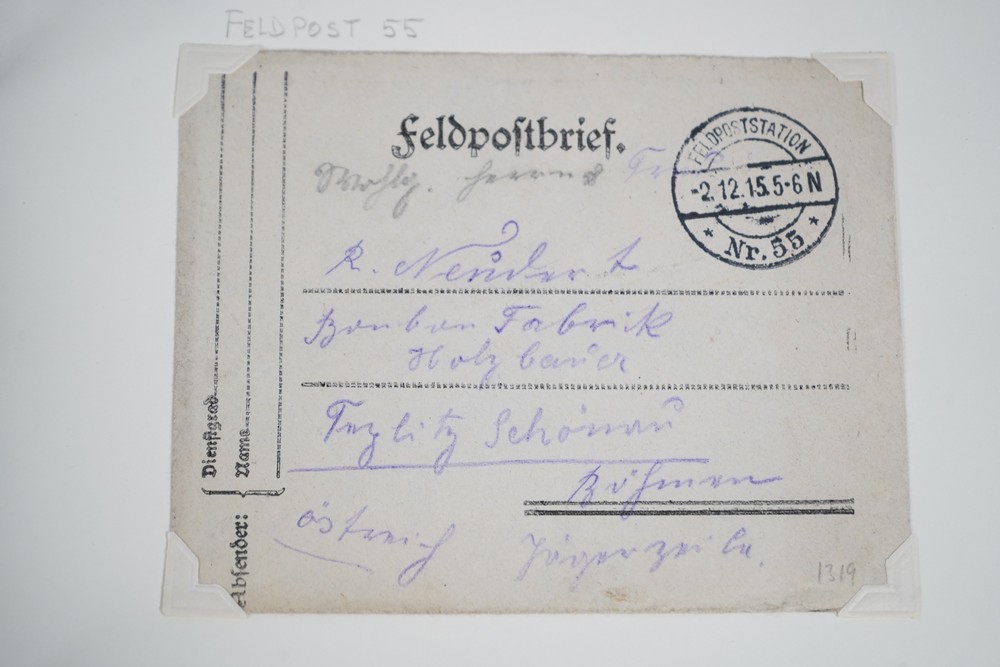 FELDPOST 55
Feldpostbrief.
FELDPOSTSTATION
-2.12.15.5-6N
* Nr. 55 *
Wohlg. Herrn
R. Neudert
Bonbon Fabrik
Holzbauer
Teplitz Schönau
Böhmen
Östreich
Jägerzeile.
Absender:
Dienstgrad
Name
1319